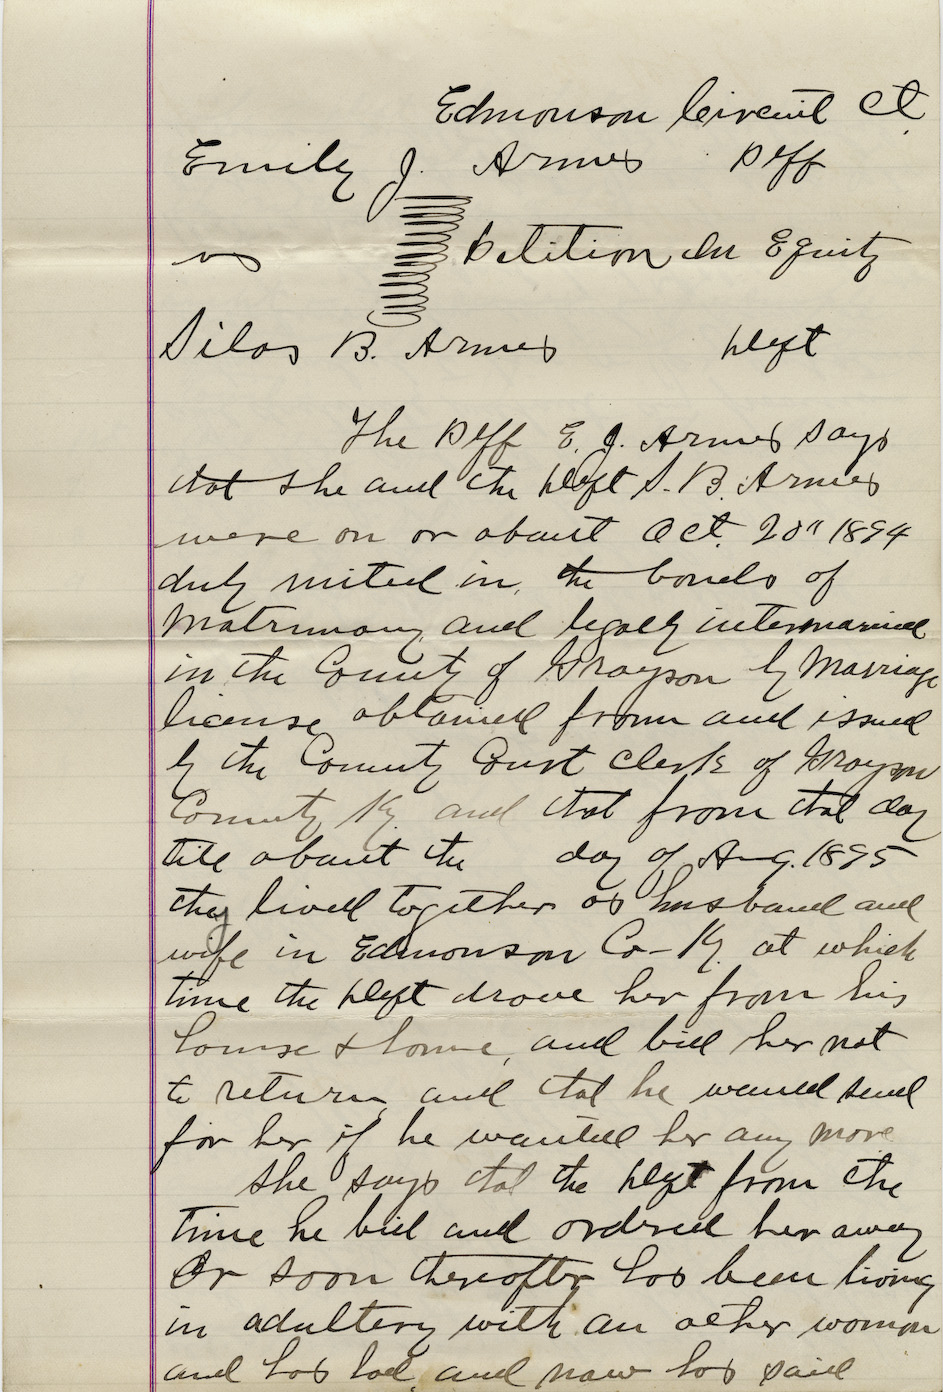 Edmonson Circuit Ct.
Emily J. Armes Plff
vs Petition In Equity
Silas B. Armes Deft
The Plff E. J. Armes says
that she and the Deft S. B. Armes
were on or about Oct. 20" 1894
duly united in, the bonds of
Matrimony, and legally intermarried
in the County of Grayson by Marriage
license obtained from and issued
by the County Court Clerk of Grayson
County Ky and that from that day
till about the day of Aug. 1895
they lived together as husband and
wife in Edmonson Co-Ky. at which
time the Deft drove her from his
house & home, and bid her not
to return, and that he would send
for her if he wanted her any more
She says that the Deft from the
time he bid and ordered her away
Or soon thereafter has been living
in adultery with an other woman
and has had, and now has said